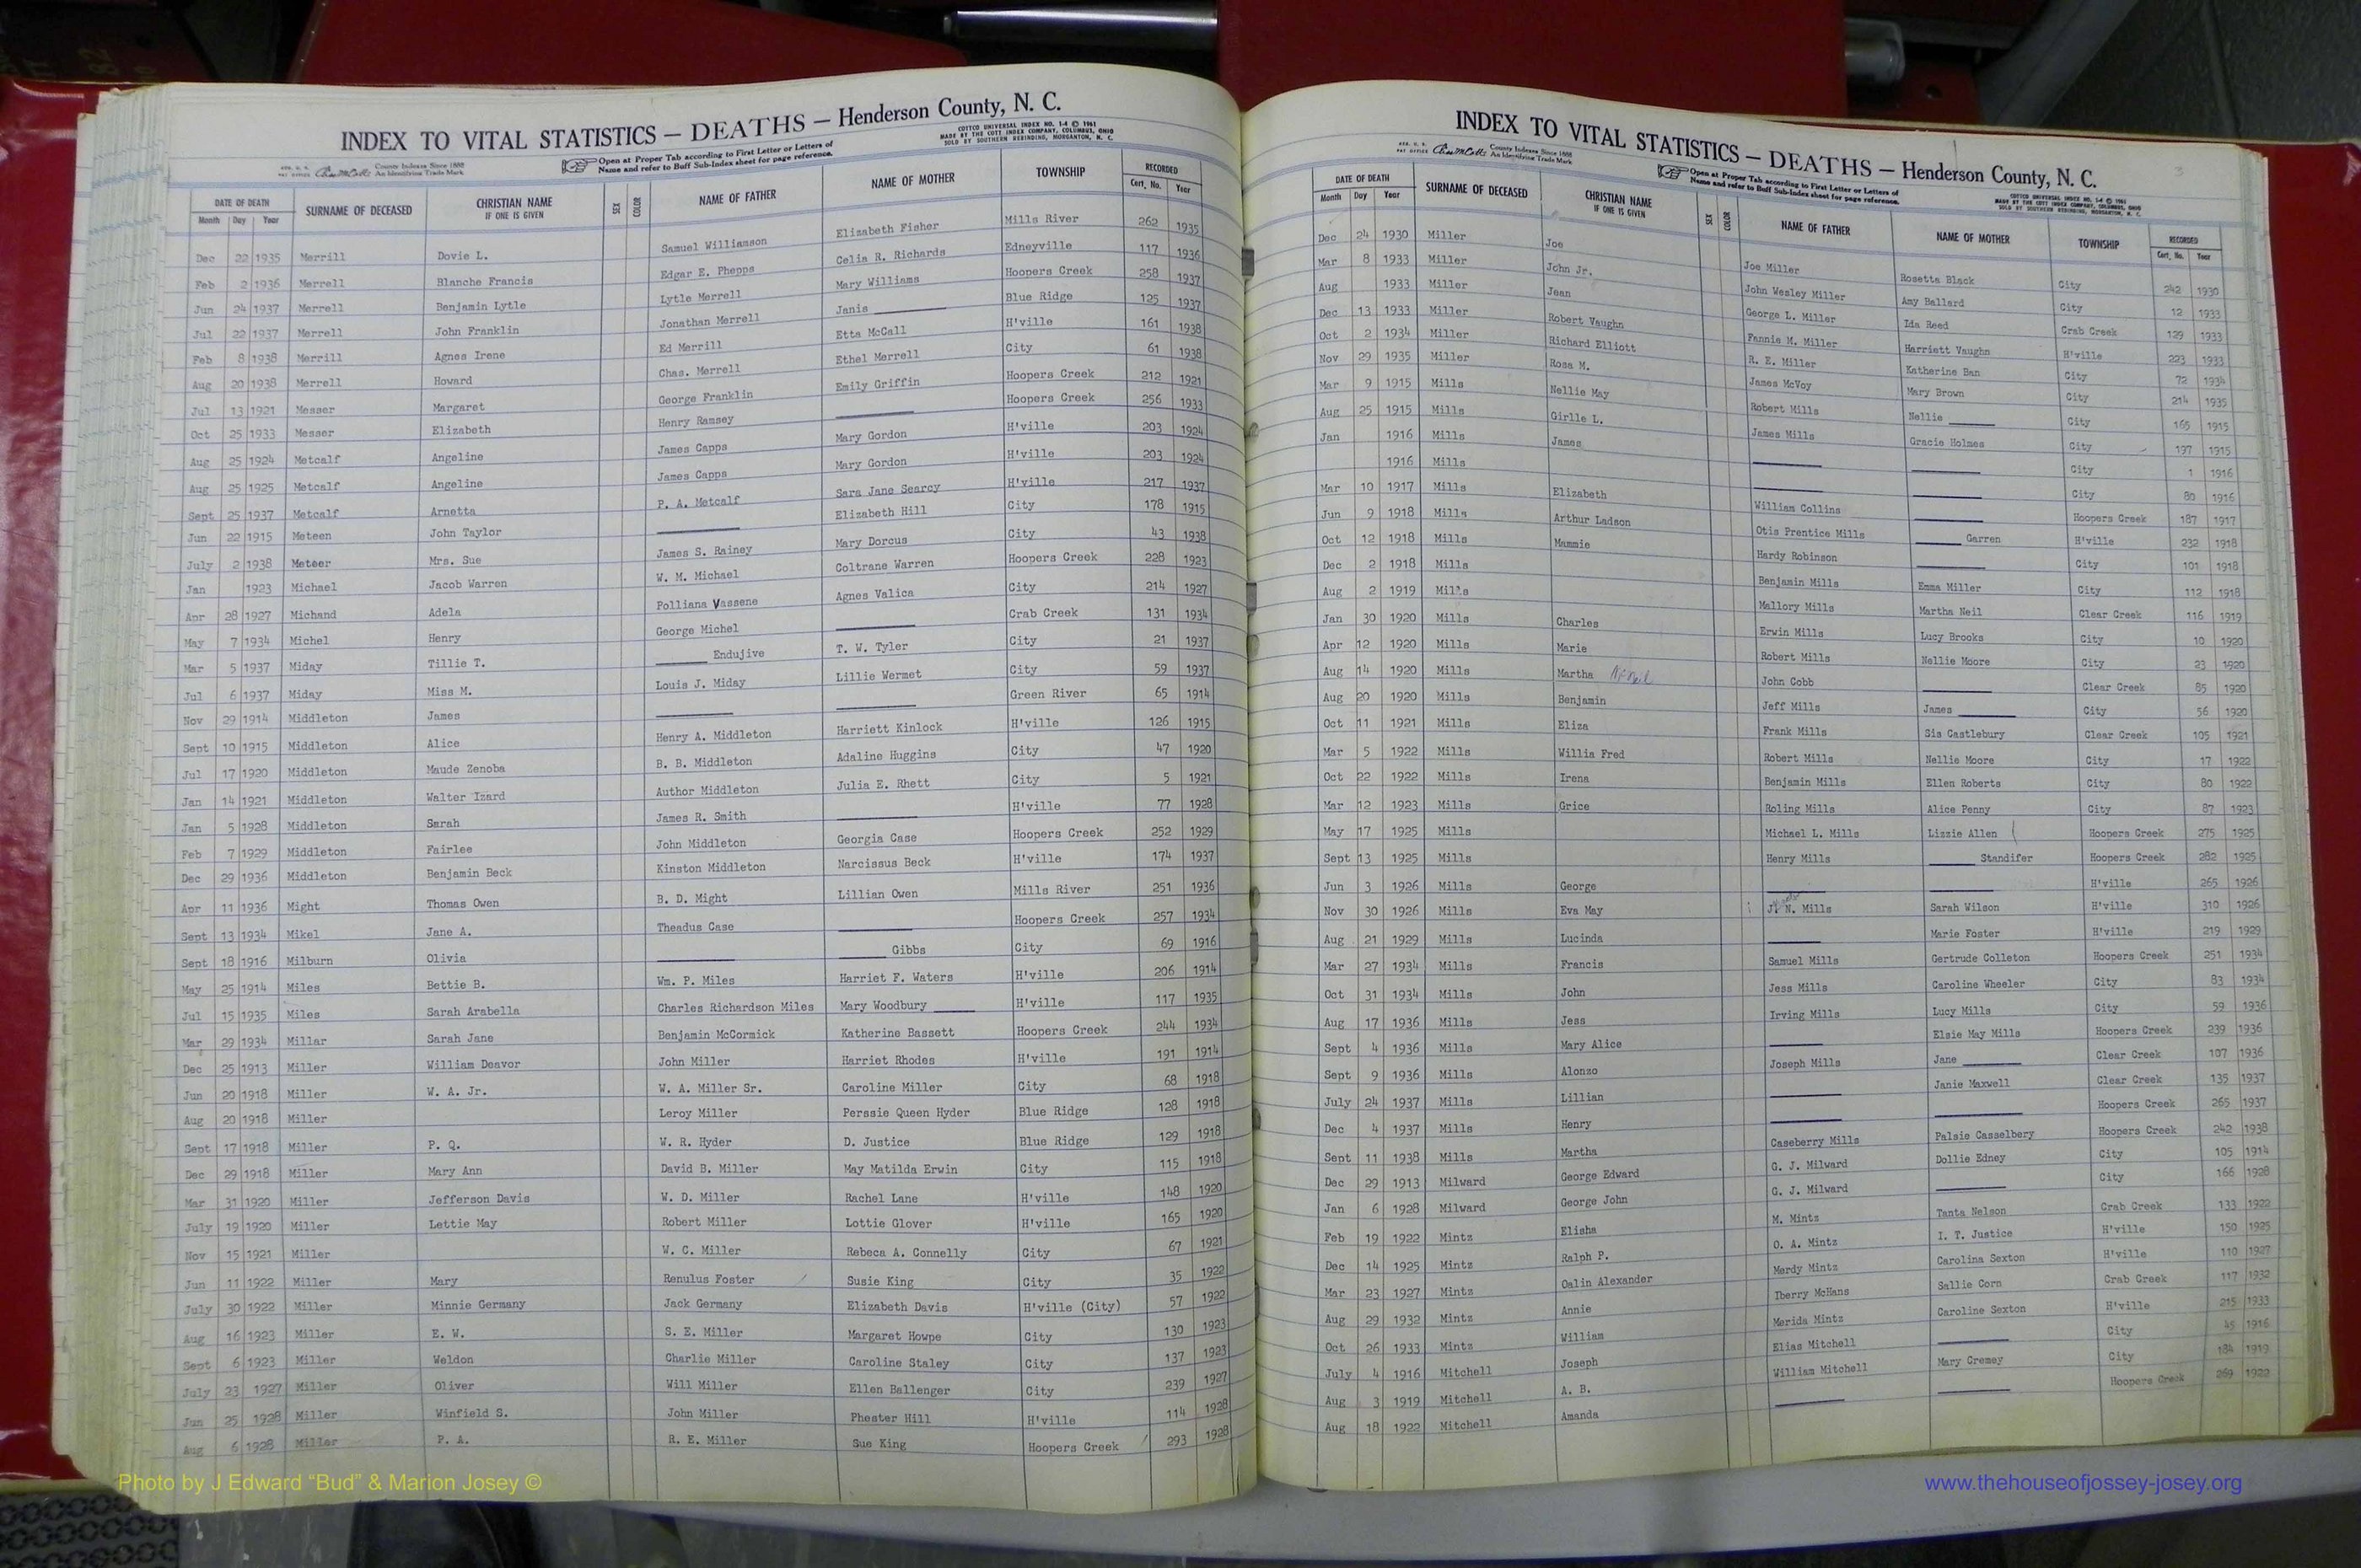 INDEX TO VITAL STATISTICS — DEATHS — Henderson County, N. C.
COTTCO UNIVERSAL INDEX NO. 1-4 © 1961
MADE BY THE COTT INDEX COMPANY, COLUMBUS, OHIO
SOLD BY SOUTHERN REBINDING, MORGANTON, N. C.
County Indexes Since 1888
An Identifying Trade Mark
Open at Proper Tab according to First Letter or Letters of
Name and refer to Buff Sub-Index sheet for page reference.
DATE OF DEATH SURNAME OF DECEASED CHRISTIAN NAME IF ONE IS GIVEN SEX COLOR NAME OF FATHER NAME OF MOTHER TOWNSHIP RECORDED
Month Day Year Cert. No. Year
Dec 22 1935 Merrill Dovie L. Samuel Williamson Elizabeth Fisher Mills River 262 1935
Feb 2 1936 Merrell Blanche Francis Edgar E. Phepps Celia R. Richards Edneyville 117 1936
Jun 24 1937 Merrell Benjamin Lytle Lytle Merrell Mary Williams Hoopers Creek 258 1937
Jul 22 1937 Merrell John Franklin Jonathan Merrell Janis Blue Ridge 125 1937
Feb 8 1938 Merrill Agnes Irene Ed Merrill Etta McCall H'ville 161 1938
Aug 20 1938 Merrell Howard Chas. Merrell Ethel Merrell City 61 1938
Jul 13 1921 Messer Margaret George Franklin Emily Griffin Hoopers Creek 212 1921
Oct 25 1933 Messer Elizabeth Henry Ramsey Hoopers Creek 256 1933
Aug 25 1924 Metcalf Angeline James Capps Mary Gordon H'ville 203 1924
Aug 25 1925 Metcalf Angeline James Capps Mary Gordon H'ville 203 1924
Sept 25 1937 Metcalf Arnetta P. A. Metcalf Sara Jane Searcy H'ville 217 1937
Jun 22 1915 Meteen John Taylor Elizabeth Hill City 178 1915
July 2 1938 Meteer Mrs. Sue James S. Rainey Mary Dorcus City 43 1938
Jan 1923 Michael Jacob Warren W. M. Michael Coltrane Warren Hoopers Creek 228 1923
Apr 28 1927 Michand Adela Polliana Vassene Agnes Valica City 214 1927
May 7 1934 Michel Henry George Michel Crab Creek 131 1934
Mar 5 1937 Miday Tillie T. Endujive T. W. Tyler City 21 1937
Jul 6 1937 Miday Miss M. Louis J. Miday Lillie Wermet City 59 1937
Nov 29 1914 Middleton James Green River 65 1914
Sept 10 1915 Middleton Alice Henry A. Middleton Harriett Kinlock H'ville 126 1915
Jul 17 1920 Middleton Maude Zenoba B. B. Middleton Adaline Huggins City 47 1920
Jan 14 1921 Middleton Walter Izard Author Middleton Julia E. Rhett City 5 1921
Jan 5 1928 Middleton Sarah James R. Smith H'ville 77 1928
Feb 7 1929 Middleton Fairlee John Middleton Georgia Case Hoopers Creek 252 1929
Dec 29 1936 Middleton Benjamin Beck Kinston Middleton Narcissus Beck H'ville 174 1937
Apr 11 1936 Might Thomas Owen B. D. Might Lillian Owen Mills River 251 1936
Sept 13 1934 Mikel Jane A. Theadus Case Hoopers Creek 257 1934
Sept 18 1916 Milburn Olivia Gibbs City 69 1916
May 25 1914 Miles Bettie B. Wm. P. Miles Harriet F. Waters H'ville 206 1914
Jul 15 1935 Miles Sarah Arabella Charles Richardson Miles Mary Woodbury H'ville 117 1935
Mar 29 1934 Millar Sarah Jane Benjamin McCormick Katherine Bassett Hoopers Creek 244 1934
Dec 25 1913 Miller William Deavor John Miller Harriet Rhodes H'ville 191 1914
Jun 20 1918 Miller W. A. Jr. W. A. Miller Sr. Caroline Miller City 68 1918
Aug 20 1918 Miller Leroy Miller Perssie Queen Hyder Blue Ridge 128 1918
Sept 17 1918 Miller P. Q. W. R. Hyder D. Justice Blue Ridge 129 1918
Dec 29 1918 Miller Mary Ann David B. Miller May Matilda Erwin City 115 1918
Mar 31 1920 Miller Jefferson Davis W. D. Miller Rachel Lane H'ville 148 1920
July 19 1920 Miller Lettie May Robert Miller Lottie Glover H'ville 165 1920
Nov 15 1921 Miller W. C. Miller Rebeca A. Connelly City 67 1921
Jun 11 1922 Miller Mary Renulus Foster Susie King City 35 1922
July 30 1922 Miller Minnie Germany Jack Germany Elizabeth Davis H'ville (City) 57 1922
Aug 16 1923 Miller E. W. S. E. Miller Margaret Howpe City 130 1923
Sept 6 1923 Miller Weldon Charlie Miller Caroline Staley City 137 1923
July 23 1927 Miller Oliver Will Miller Ellen Ballenger City 239 1927
Jun 25 1928 Miller Winfield S. John Miller Phester Hill H'ville 114 1928
Aug 6 1928 Miller P. A. R. E. Miller Sue King Hoopers Creek 293 1928
INDEX TO VITAL STATISTICS — DEATHS — Henderson County, N. C.
County Indexes Since 1888
An Identifying Trade Mark
Open at Proper Tab according to First Letter or Letters of
Name and refer to Buff Sub-Index sheet for page reference.
COTTCO UNIVERSAL INDEX NO. 1-4 © 1961
MADE BY THE COTT INDEX COMPANY, COLUMBUS, OHIO
SOLD BY SOUTHERN REBINDING, MORGANTON, N. C.
3
DATE OF DEATH SURNAME OF DECEASED CHRISTIAN NAME IF ONE IS GIVEN SEX COLOR NAME OF FATHER NAME OF MOTHER TOWNSHIP RECORDED
Month Day Year Cert. No. Year
Dec 24 1930 Miller Joe Joe Miller Rosetta Black City 242 1930
Mar 8 1933 Miller John Jr. John Wesley Miller Amy Ballard City 12 1933
Aug 1933 Miller Jean George L. Miller Ida Reed Crab Creek 129 1933
Dec 13 1933 Miller Robert Vaughn Fannie M. Miller Harriett Vaughn H'ville 223 1933
Oct 2 1934 Miller Richard Elliott R. E. Miller Katherine Ban City 72 1934
Nov 29 1935 Miller Rosa M. James McVoy Mary Brown City 214 1935
Mar 9 1915 Mills Nellie May Robert Mills Nellie City 165 1915
Aug 25 1915 Mills Girlle L. James Mills Gracie Holmes City 197 1915
Jan 1916 Mills James City 1 1916
1916 Mills City 80 1916
Mar 10 1917 Mills Elizabeth William Collins Hoopers Creek 187 1917
Jun 9 1918 Mills Arthur Ladson Otis Prentice Mills Garren H'ville 232 1918
Oct 12 1918 Mills Mammie Hardy Robinson City 101 1918
Dec 2 1918 Mills Benjamin Mills Emma Miller City 112 1918
Aug 2 1919 Mills Mallory Mills Martha Neil Clear Creek 116 1919
Jan 30 1920 Mills Charles Erwin Mills Lucy Brooks City 10 1920
Apr 12 1920 Mills Marie Robert Mills Nellie Moore City 23 1920
Aug 14 1920 Mills Martha John Cobb Clear Creek 85 1920
Aug 20 1920 Mills Benjamin Jeff Mills James City 56 1920
Oct 11 1921 Mills Eliza Frank Mills Sis Castlebury Clear Creek 105 1921
Mar 5 1922 Mills Willia Fred Robert Mills Nellie Moore City 17 1922
Oct 22 1922 Mills Irena Benjamin Mills Ellen Roberts City 80 1922
Mar 12 1923 Mills Grice Roling Mills Alice Penny City 87 1923
May 17 1925 Mills Michael L. Mills Lizzie Allen Hoopers Creek 275 1925
Sept 13 1925 Mills Henry Mills Standifer Hoopers Creek 282 1925
Jun 3 1926 Mills George H'ville 265 1926
Nov 30 1926 Mills Eva May J. N. Mills Sarah Wilson H'ville 310 1926
Aug 21 1929 Mills Lucinda Marie Foster H'ville 219 1929
Mar 27 1934 Mills Francis Samuel Mills Gertrude Colleton Hoopers Creek 251 1934
Oct 31 1934 Mills John Jess Mills Caroline Wheeler City 83 1934
Aug 17 1936 Mills Jess Irving Mills Lucy Mills City 59 1936
Sept 4 1936 Mills Mary Alice Elsie May Mills Hoopers Creek 239 1936
Sept 9 1936 Mills Alonzo Joseph Mills Jane Clear Creek 107 1936
July 24 1937 Mills Lillian Janie Maxwell Clear Creek 135 1937
Dec 4 1937 Mills Henry Hoopers Creek 265 1937
Sept 11 1938 Mills Martha Caseberry Mills Palsie Casselbery Hoopers Creek 242 1938
Dec 29 1913 Milward George Edward G. J. Milward Dollie Edney City 105 1914
Jan 6 1928 Milward George John G. J. Milward City 166 1928
Feb 19 1922 Mintz Elisha M. Mintz Tanta Nelson Crab Creek 133 1922
Dec 14 1925 Mintz Ralph P. O. A. Mintz I. T. Justice H'ville 150 1925
Mar 23 1927 Mintz Oalin Alexander Merdy Mintz Carolina Sexton H'ville 110 1927
Aug 29 1932 Mintz Annie Iberry McHans Sallie Corn Crab Creek 117 1932
Oct 26 1933 Mintz William Merida Mintz Caroline Sexton H'ville 215 1933
July 4 1916 Mitchell Joseph Elias Mitchell City 45 1916
Aug 3 1919 Mitchell A. B. William Mitchell Mary Cremey City 184 1919
Aug 18 1922 Mitchell Amanda Hoopers Creek 269 1922
Photo by J Edward “Bud” & Marion Josey ©
www.thehouseofjossey-josey.org